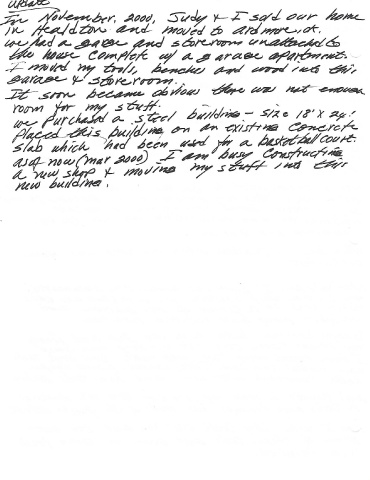 Update
In November, 2000, Judy & I sold our home
in Healdton and moved to Ardmore, ok.
We had a garage and storeroom unattached to
the house complete w/ a garage apartment.
I moved my tools, benches and wood into this
garage & storeroom.
It soon became obvious there was not enough
room for my stuff.
We purchased a steel building - size 18' x 24'.
Placed this building on an existing concrete
slab which had been used for a basketball court.
as of now (Mar 2000) I am busy constructing
a new shop & moving my stuff into this
new building.